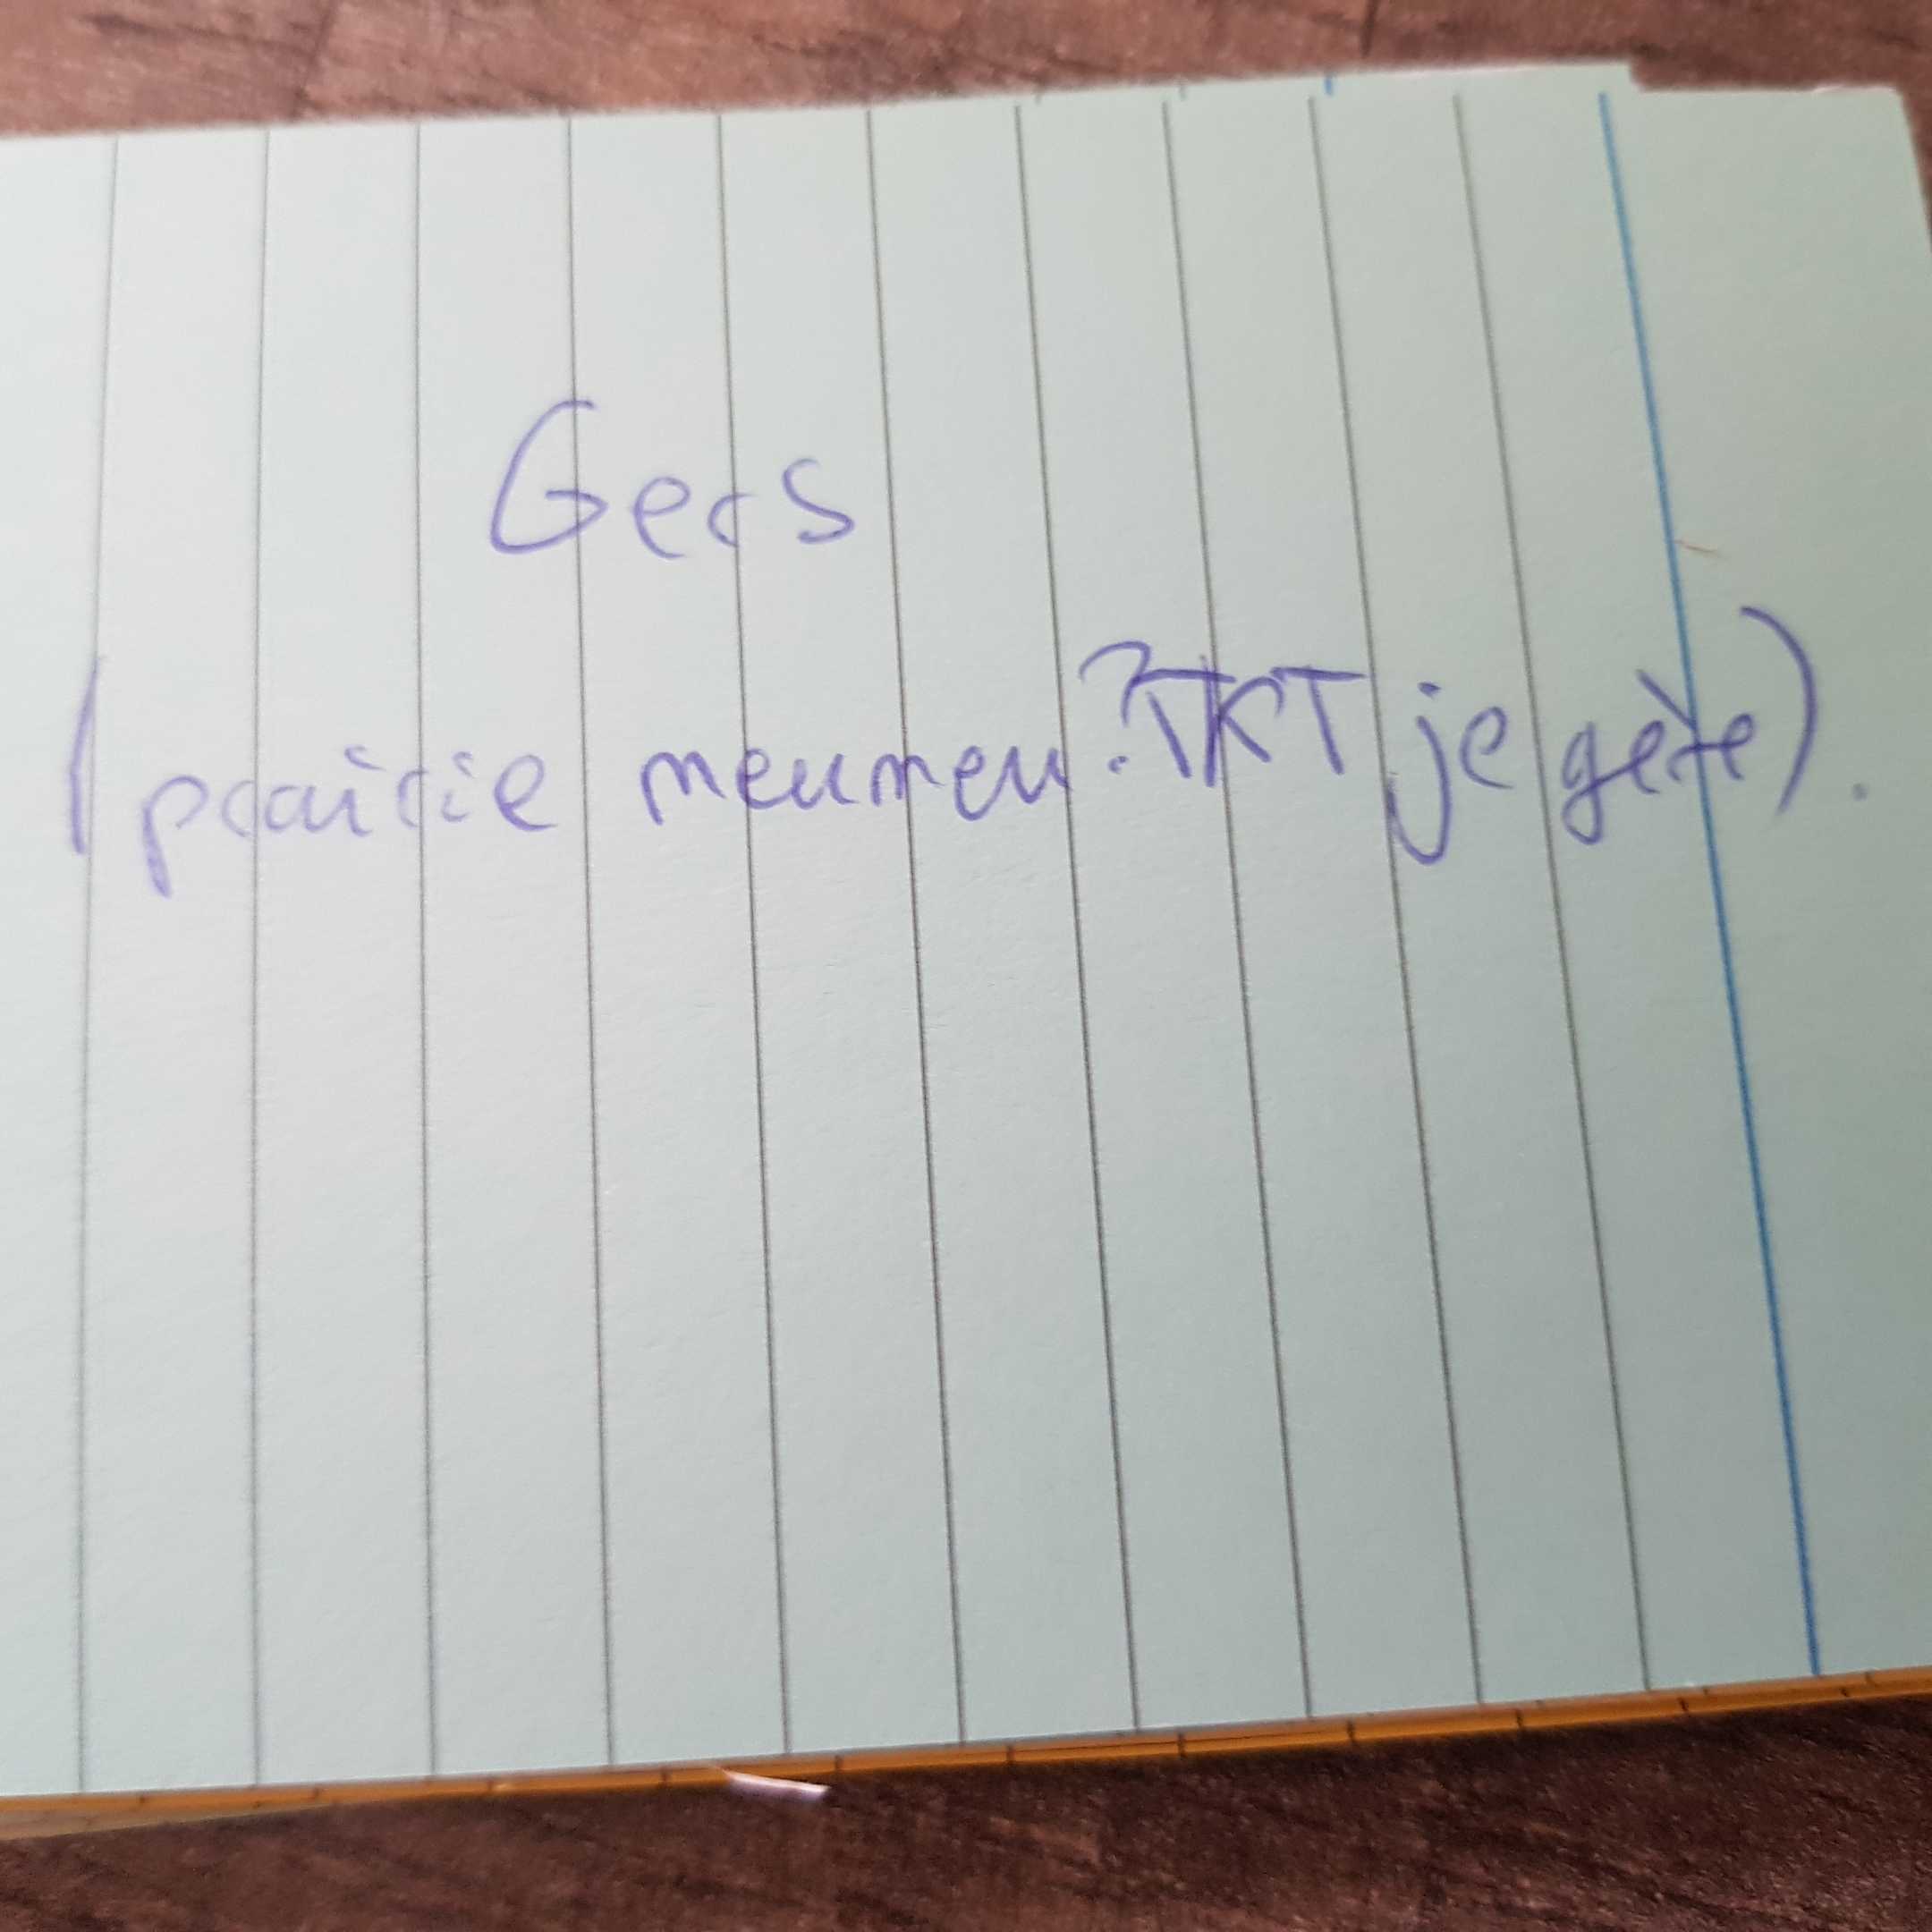 Gers
(prairie meumeu? TKT je gère).